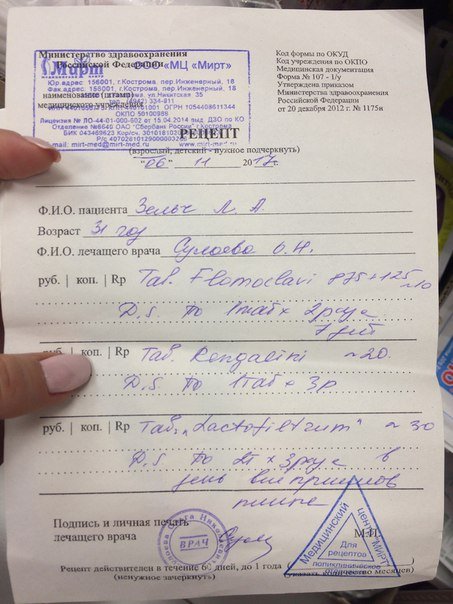 Министерство здравоохранения
Российской Федерации
ООО «МЦ «Мирт»
Мирт
Юр.адрес 156001, г.Кострома, пер.Инженерный, 18
адрес 156001, г.Кострома, пер.Инженерный, 18
наименование (штамп)
медицинского учреждения
ОГРН 1054408611344
ОКПО 50100988
Лицензия № ЛО-44-01-000-602 от 15.04.2014 выд. ДЗО по КО
Отделение №8640 ОАО "Сбербанк России" г.Кострома
mail: mirt-med@mirt-med.ru
Код формы по ОКУД
Код учреждения по ОКПО
Медицинская документация
Форма № 107 - 1/у
Утверждена приказом
Министерства здравоохранения
Российской Федерации
от 20 декабря 2012 г. № 1175н
РЕЦЕПТ
(взрослый, детский - нужное подчеркнуть)
"06" 11 2017г.
Ф.И.О. пациента Зельч Л. А.
Возраст 31 год
Ф.И.О. лечащего врача О.Н.
руб. | коп. | Rp Tab. Flemoclavi 875+125
~10
D.S. по 1таб x 2раза
7 дней
руб. | коп. | Rp Tab. Rengalini ~20
D.S по 1таб x 3р
руб. | коп. | Rp Tab. "Lactofiltrum" ~30
D.S. по 2т x 3раза в
день вне приемов
пищи
Подпись и личная печать
лечащего врача
М.П.
ВРАЧ
Медицинский центр "МИРТ"
Для рецептов
поликлиническое
Рецепт действителен в течение 60 дней, до 1 года
(ненужное зачеркнуть)
(указать количество месяцев)